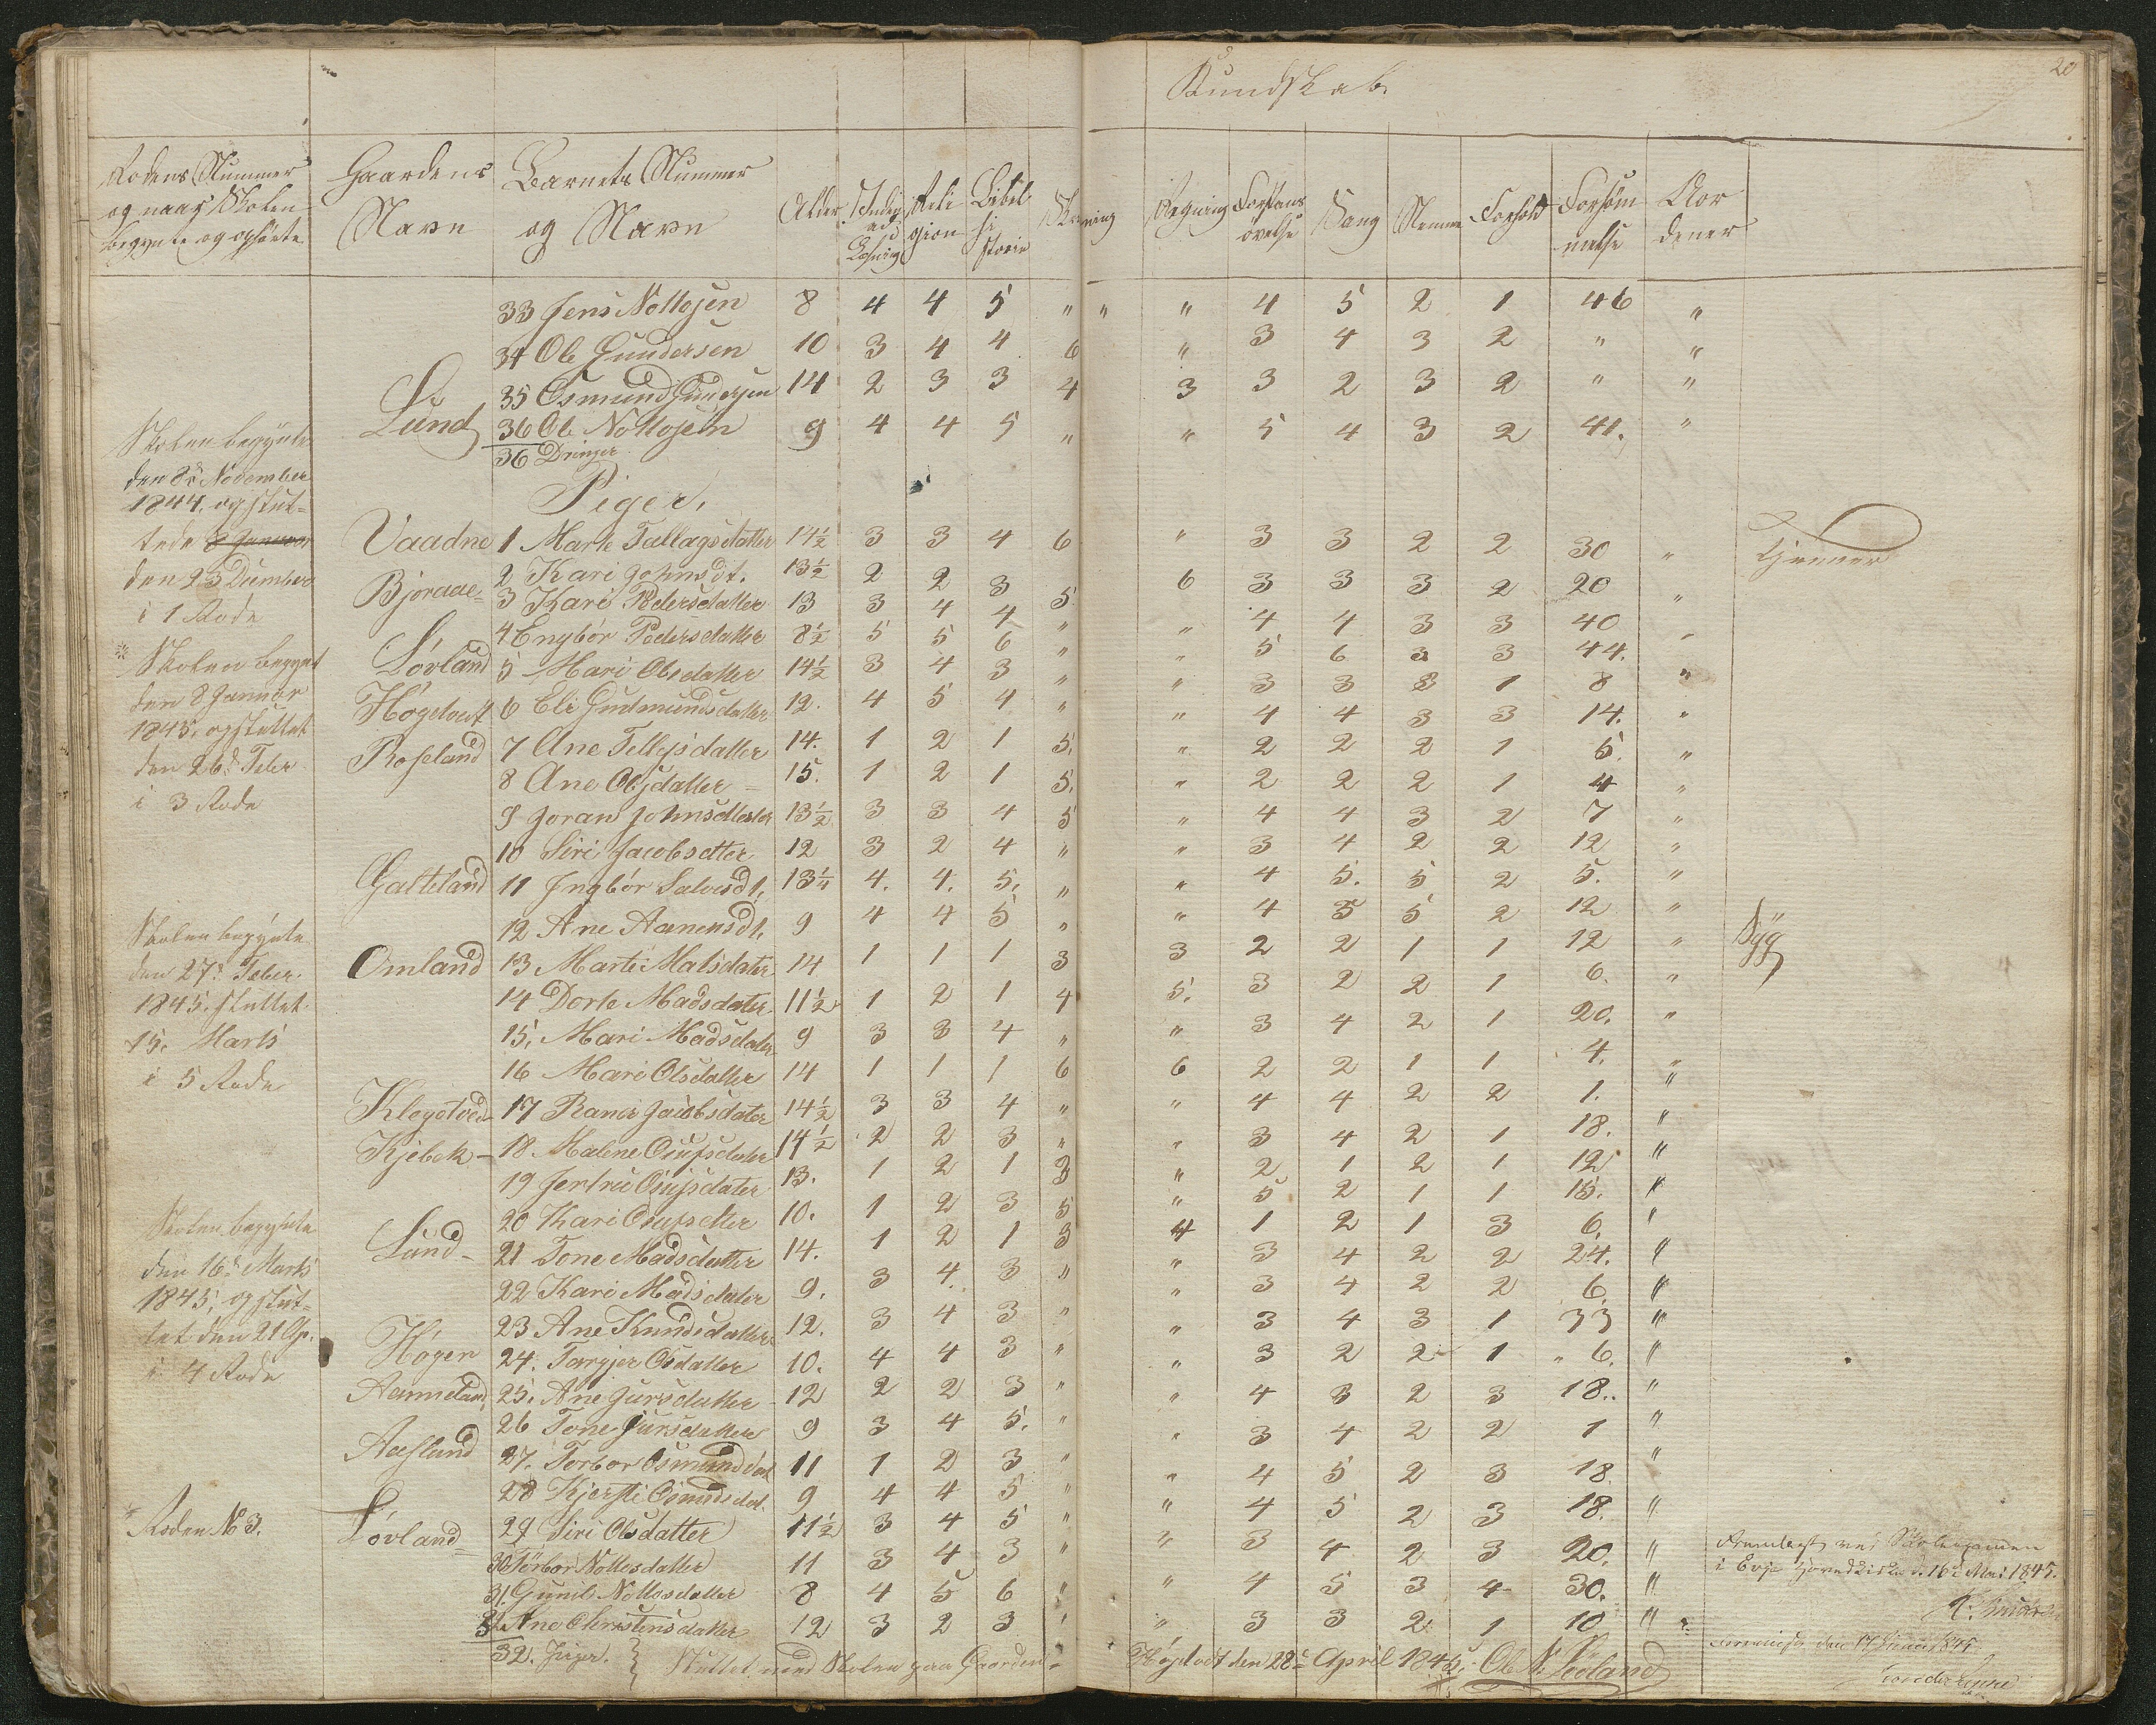 20
Kundskab.
Rodens Nummer og naar Skolen begynte og ophörte
Gaardens Navn
Barnets Nummer og Navn
Alder
Religion
Bibelhistorie
Skrivning
Regning
Forstandsövelse
Sang
Nemme
Forhold
Forsömmelse
33 Jens Nottosen 8 4 4 5 " " " 4 5 2 1 46 "
34 Ole Gundersen 10 3 4 4 6 " 3 4 3 2 " "
Lund 35 Osmund Gundersen 14 2 3 3 4 3 3 2 3 2 " "
36 Ole Nottosen 9 4 4 5 " " 5 4 3 2 41. "
36 Drenger
Piger,
Skolen begynte
den 8de November
1844, og slut-
tede
den 23 Decimber
i 1 Rode
Vaadne 1 Marte Tallagsdatter 14½ 3 3 4 6 " 3 3 2 2 30 " Tjener
Bjoraae 2 Kari Johnsdt. 13½ 2 2 3 5 6 3 3 3 2 20 "
3 Kari Pedersdatter 13 3 4 4 " " 4 4 3 3 40 "
4 Engbör Pedersdatter 8½ 5 5 6 " " 5 6 3 3 44. "
Lövland 5 Mari Olsdatter 14½ 3 4 3 " " 3 3 3 1 8 "
Skolen begynt
den 8 Januar
1845, og sluttet
den 26de Feber
i 3 Rode
Högetvedt 6 Eli Gudmundsdatter 12. 4 5 4 " " 4 4 3 3 14. "
Roseland 7 Ane Tellefsdatter 14. 1 2 1 5. " 2 2 2 1 5. "
8 Ane Olsdatter 15. 1 2 1 5. " 2 2 2 1 4 "
9 Joran Johnsdatter 13½ 3 3 4 5 " 4 4 3 2 7 "
10 Siri Jacobsdtter 12 3 2 4 " " 3 4 2 2 12 "
Gatteland 11 Ingbör Salvesdt. 13¼ 4. 4. 5. " " 4 5. 5. 2 5. "
12 Ane Aanensdt. 9 4 4 5 " " 4 5 5 2 12 "
Skolen begynte
den 27de Feber.
1845. sluttet.
15. Marts
i 5 Rode
Omland 13 Marte Matsdater 14 1 1 1 3 3 2 2 1 1 12 " Syg
14 Dorte Madsdater 11½ 1 2 1 4 5. 3 2 2 1 6. "
15. Mari Madsdater 9 3 3 4 " " 3 4 2 1 20. "
16 Mari Olsdatter 14 1 1 1 6 6 2 2 1 1 4. "
Klegetved 17 Raner Jacobsdater 14½ 3 3 4 " " 4 4 2 2 1. "
Kjebek 18. Malene Osufsdater 14½ 2 2 3 " " 3 4 2 1 18. "
19 Jertrü Osufsdater 13. 1 2 1 3 " 2 1 2 1 12 "
20 Kari Osufsdtter 10. 1 2 3 5 " 5 2 1 1 15. "
Skolen begynte
den 16de Marts
1845, og slut-
tet den 21 Ap.
i 4 Rode
Lund 21 Tone Madsdatter 14. 1 2 1 3 4 1 2 1 3 6. "
22 Kari Madsdater 9. 3 4. 3 " " 3 4 2 2 24. "
23 Ane Knudsdatter 12. 3 4 3 " " 3 4 2 2 6. "
Högen 24. Targjer Osdatter 10. 4 4 3 " " 3 4 3 1 33 "
Aanneland 25. Ane Jursdatter 12 2 2 3 " " 3 2 2 1 6. "
26 Tone Jursdatter 9 3 4 5. " " 4 3 2 3 18.. "
Aasland 27. Torbor Osmundsdat 11 1 2 3 " " 3 4 2 2 1 "
28 Kjersti Osmudsdat. 9 4 4 5 " " 4 5 2 3 18. "
Roden No 3.
Lövland 29 Siri Olsdatter 11½ 3 4 5 " " 4 5 2 3 18. "
30 Törbor Nottosdatter 11 3 4 3 " " 3 4 2 3 20. "
31. Gunil Nottosdatter 8 4 5 6 " " 4 5 3 4 30. "
32 Ane Christensdatter 12 3 2 3 " " 3 3 2 1 10 "
32. Piger.
Sluttet med Skolen paa Gaarden Högetvedt den 28de April 1845. Ole N. Lövland
Fremlagt ved Skoleexamen
i Evje Hovedkirke d. 16de Mai 1845.